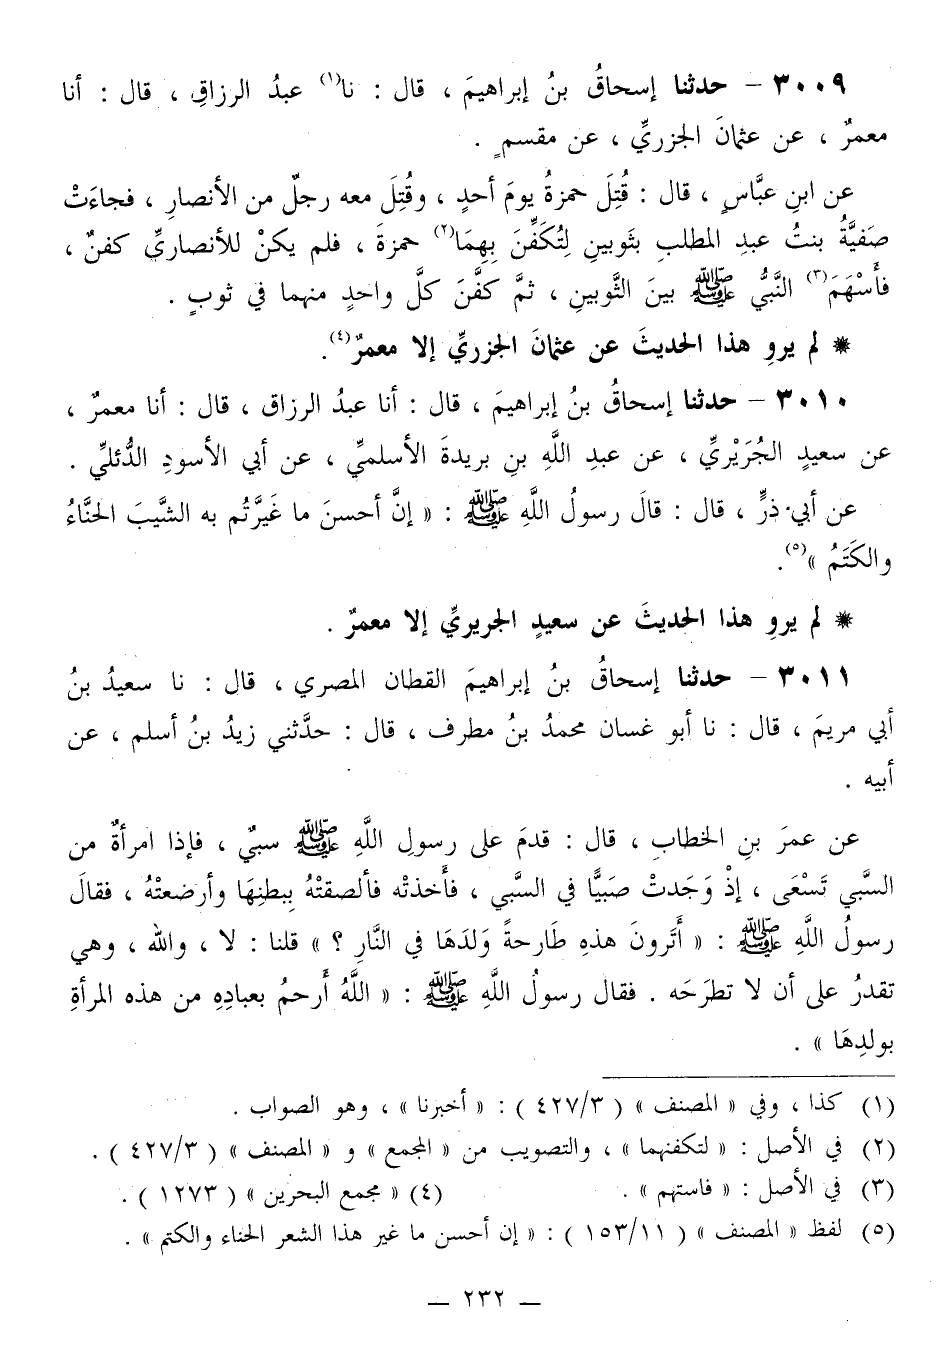 ٣٠٠٩ – حدثنا إسحاقُ بنُ إبراهيمَ ، قال : نا(١) عبدُ الرزاقِ ، قال : أنا
معمرٌ ، عن عثمانَ الجزريِّ ، عن مقسمٍ .
عن ابنِ عبَّاسٍ ، قال : قُتِلَ حمزةُ يومَ أحدٍ ، وقُتِلَ معه رجلٌ من الأنصارِ ، فجاءَتْ
صَفيَّةُ بنتُ عبدِ المطلبِ بثَوبينِ لِتُكَفِّنَ بِهِمَا(٢) حمزةَ ، فلم يكنْ للأنصاريِّ كفنٌ ،
فأَسْهَمَ(٣) النَّبيُّ ﷺ بينَ الثَّوبينِ ، ثمَّ كفَّنَ كلَّ واحدٍ منهما في ثوبٍ .
* لم يروِ هذا الحديثَ عن عثمانَ الجزريِّ إلا معمرٌ(٤).
٣٠١٠ – حدثنا إسحاقُ بنُ إبراهيمَ ، قال : أنا عبدُ الرزاق ، قال : أنا معمرٌ ،
عن سعيدٍ الجُرَيْريِّ ، عن عبدِ اللَّهِ بنِ بريدةَ الأسلميِّ ، عن أبي الأسودِ الدُّئليِّ .
عن أبي ذرٍّ ، قال : قالَ رسولُ اللَّهِ ﷺ : « إنَّ أحسنَ ما غَيَّرتُم به الشَّيبَ الحنَّاءُ
والكَتَمُ »(٥).
* لم يروِ هذا الحديثَ عن سعيدٍ الجريريِّ إلا معمرٌ .
٣٠١١ – حدثنا إسحاقُ بنُ إبراهيمَ القطان المصري ، قال : نا سعيدُ بنُ
أبي مريمَ ، قال : نا أبو غسان محمدُ بنُ مطرف ، قال : حدَّثني زيدُ بنُ أسلم ، عن
أبيه .
عن عمرَ بنِ الخطابِ ، قال : قدمَ على رسولِ اللَّهِ ﷺ سبيٌ ، فإذا امرأةٌ من
السَّبي تَسْعَى ، إذْ وَجَدتْ صَبيًّا في السَّبي ، فأَخذتْه فألصقتْهُ بِبطنِهَا وأرضعتْهُ ، فقالَ
رسولُ اللَّهِ ﷺ : « أَتَرونَ هذهِ طَارحةً وَلدَهَا في النَّارِ ؟ » قلنا : لا ، والله ، وهي
تقدرُ على أن لا تطرَحَه . فقال رسولُ اللَّهِ ﷺ : « اللَّهُ أَرحمُ بعبادِهِ من هذه المرأةِ
بولدِهَا » .
(١) كذا ، وفي « المصنف » ( ٤٢٧/٣ ) : « أخبرنا » ، وهو الصواب .
(٢) في الأصل : « لتكفنهما » ، والتصويب من « المجمع » و « المصنف » ( ٤٢٧/٣ ) .
(٣) في الأصل : « فاستهم » . (٤) « مجمع البحرين » ( ١٢٧٣ ) .
(٥) لفظ « المصنف » ( ١٥٣/١١ ) : « إن أحسن ما غير هذا الشعر الحناء والكتم » .
– ٢٣٢ –